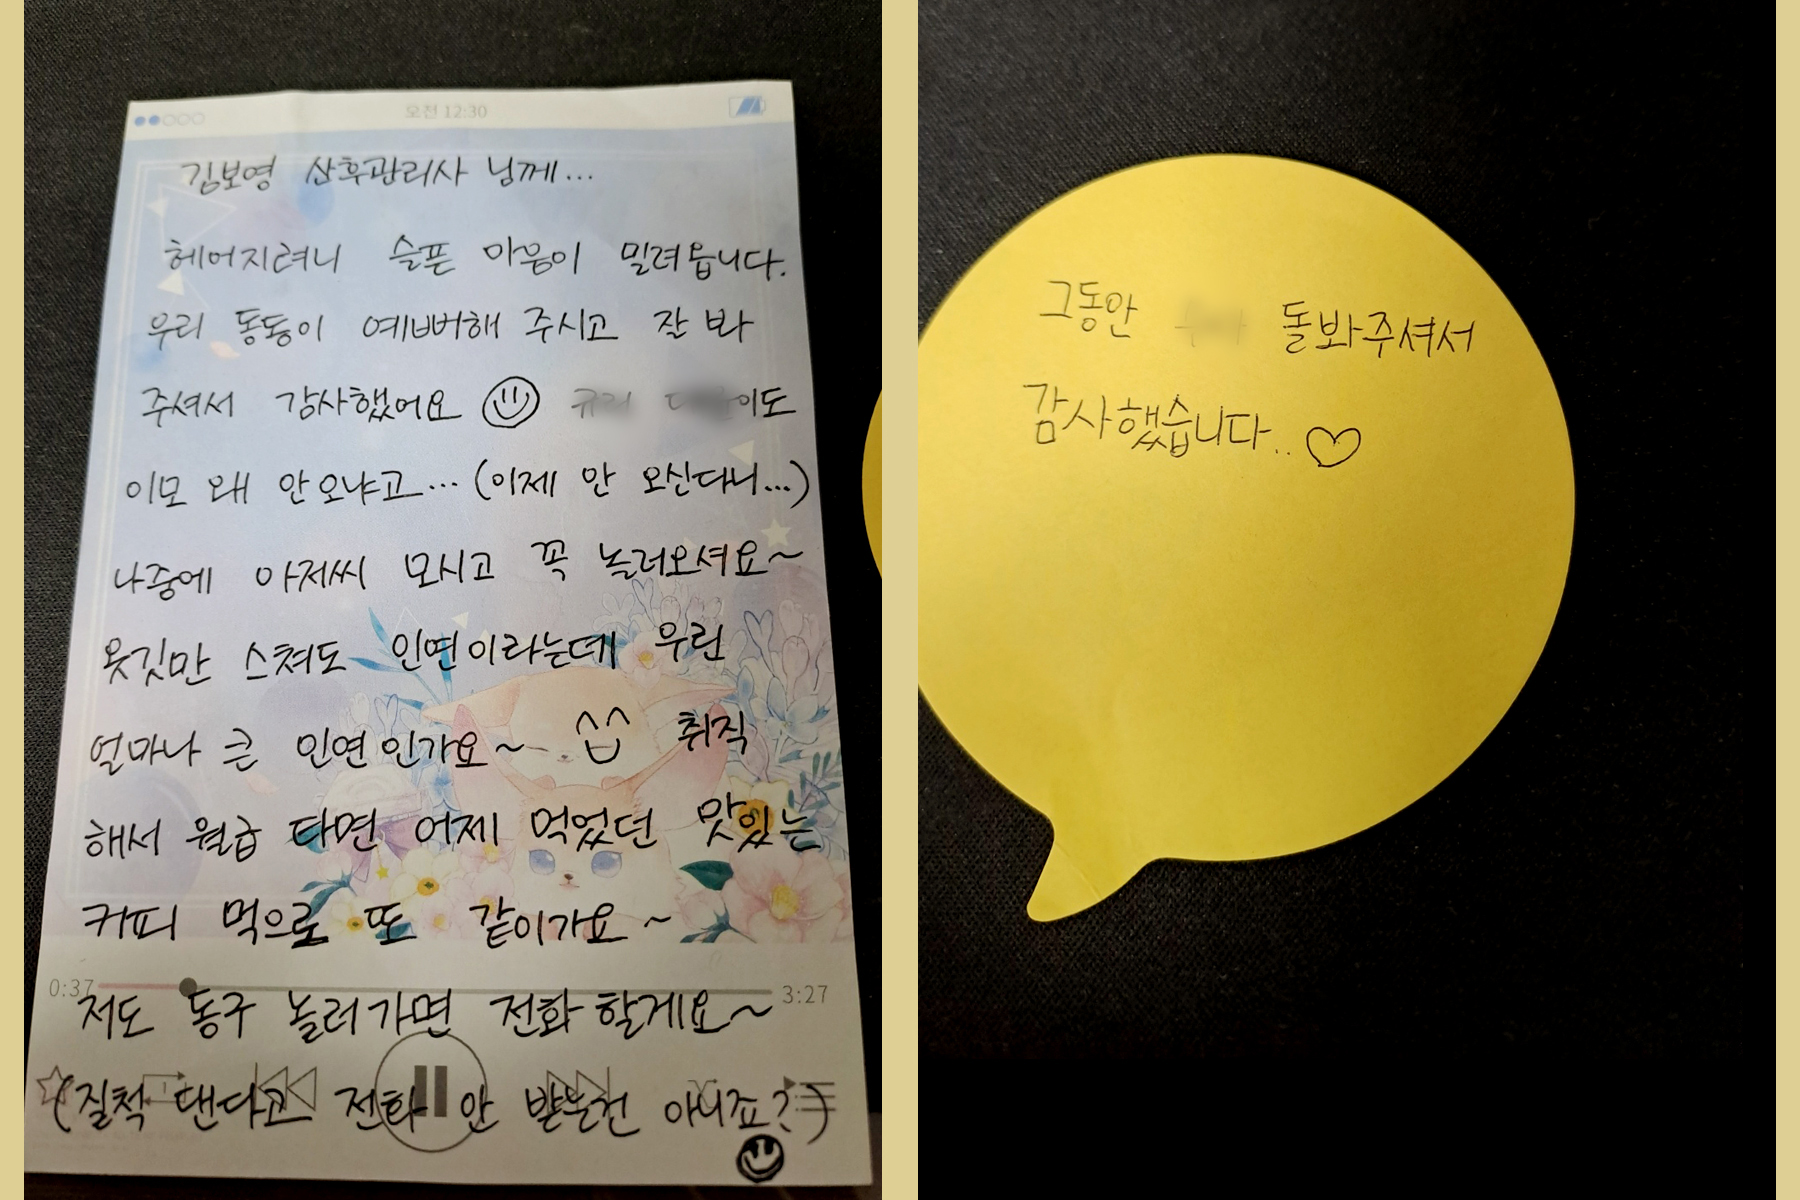 오전 12:30
김보영 산후관리사 님께...
헤어지려니 슬픈 마음이 밀려옵니다.
우리 동동이 예뻐해 주시고 잘 봐
주셔서 감사했어요
이도
이모 왜 안오냐고... (이제 안 오신다니...)
나중에 아저씨 모시고 꼭 놀러오셔요~
옷깃만 스쳐도 인연이라는데 우린
얼마나 큰 인연인가요~ 취직
해서 월급 타면 어제 먹었던 맛있는
커피 먹으로 또 같이가요~
0:37 3:27
저도 동구 놀러가면 전화할게요~
(질척 댄다고 전화 안 받는건 아니죠?)
그동안 돌봐주셔서
감사했습니다.. ♡